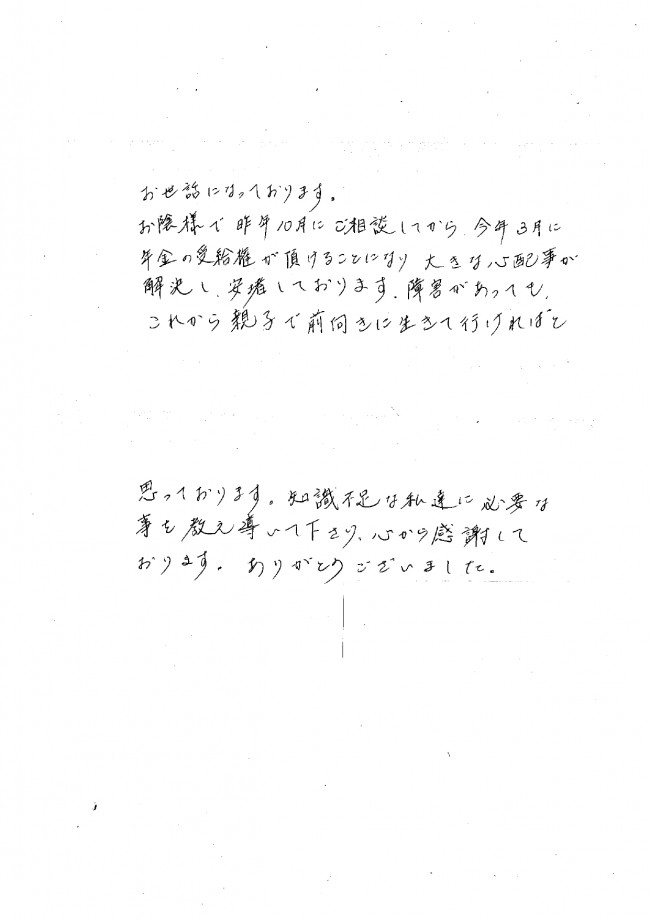 お世話になっております。
お陰様で昨年10月にご相談してから、今年3月に
年金の受給権が頂けることになり 大きな心配事が
解決し、安堵しております。障害があっても、
これから親子で前向きに生きて行ければと
思っております。知識不足な私達に必要な
事を教え導いて下さり、心から感謝して
おります。ありがとうございました。